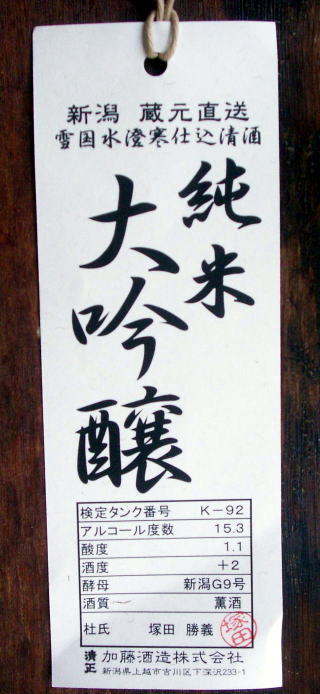 新潟 蔵元直送
雪国水澄寒仕込清酒
純米
大吟醸
検定タンク番号 K－92
アルコール度数 15.3
酸度 1.1
酒度 ＋2
酵母 新潟G9号
酒質 薫酒
杜氏 塚田 勝義
塚田
清正 加藤酒造株式会社
新潟県上越市吉川区下深沢233-1